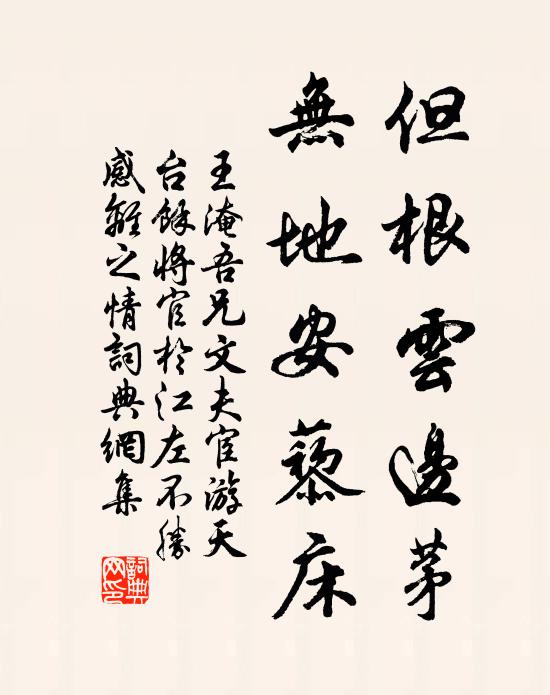 但根雲邊茅
無地安藜床
王淹吾兄文夫宦游天
台餘將官於江左不勝
感離之情詞典網集
詞典
网印